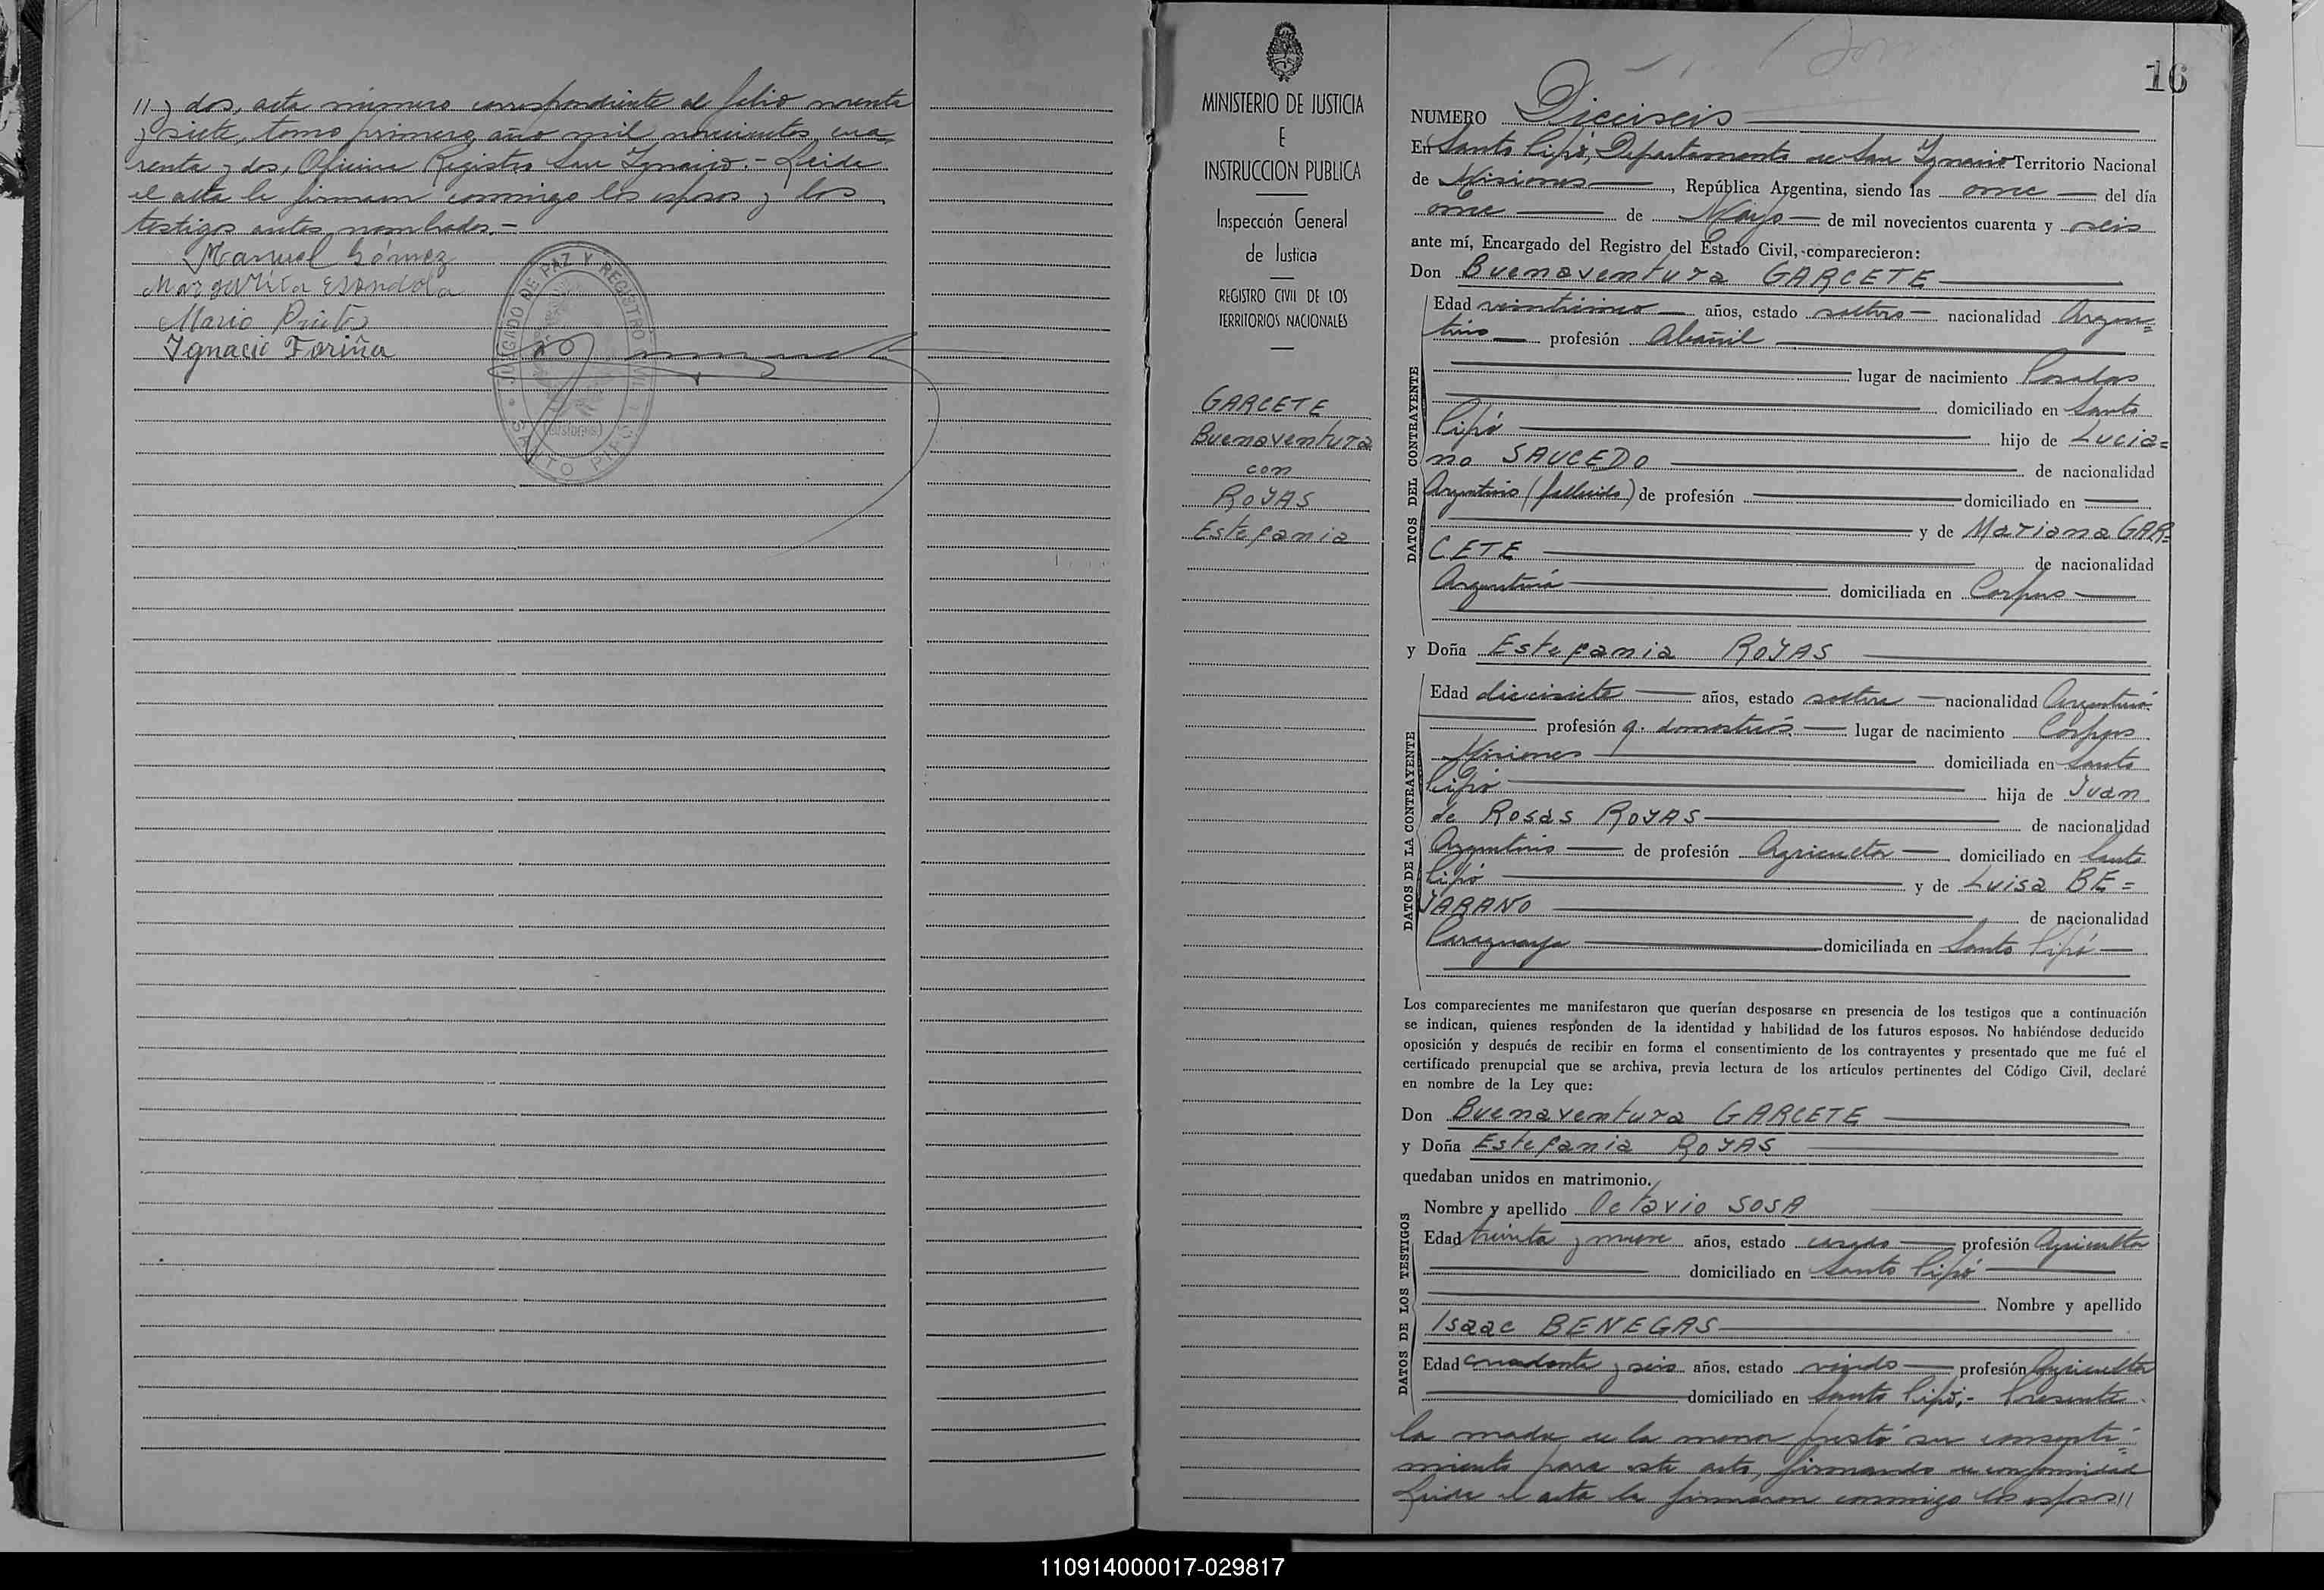 // y dos, acta número correspondiente al folio noventa
y siete, tomo primero, año mil novecientos cua-
renta y dos, Oficina Registro San Ignacio.- Leída
el acta la firmaron conmigo los esposos y los
testigos antes nombrados.-
Manuel Gómez
Margarita
Mario Prieto
Ignacio Fariña
JUZGADO DE PAZ Y REGISTRO CIVIL
(Misiones)
SANTO PIPO
MINISTERIO DE JUSTICIA
E
INSTRUCCION PUBLICA
Inspección General
de Justicia
REGISTRO CIVIL DE LOS
TERRITORIOS NACIONALES
GARCETE
Buenaventura
con
ROJAS
Estefania
16
NUMERO Dieciseis
En Santo Pipó, Departamento de San Ignacio Territorio Nacional
de Misiones, República Argentina, siendo las once del día
once de Mayo de mil novecientos cuarenta y seis
ante mí, Encargado del Registro del Estado Civil, comparecieron:
Don Buenaventura GARCETE
DATOS DEL CONTRAYENTE
Edad veinticinco años, estado soltero nacionalidad Argen=
tino profesión Albañil
lugar de nacimiento Posadas
domiciliado en Santo
Pipó hijo de Lucia=
no SAUCEDO de nacionalidad
Argentino (fallecido) de profesión domiciliado en
y de Mariana GAR=
CETE de nacionalidad
Argentina domiciliada en Corpus
y Doña Estefania ROJAS
DATOS DE LA CONTRAYENTE
Edad diecisiete años, estado soltera nacionalidad Argentina
profesión q. domésticos lugar de nacimiento Corpus
Misiones domiciliada en Santo
Pipó hija de Juan
de Rosas ROJAS de nacionalidad
Argentino de profesión Agricultor domiciliado en Santo
Pipó y de Luisa BE=
JARANO de nacionalidad
Paraguaya domiciliada en Santo Pipó
Los comparecientes me manifestaron que querían desposarse en presencia de los testigos que a continuación
se indican, quienes responden de la identidad y habilidad de los futuros esposos. No habiéndose deducido
oposición y después de recibir en forma el consentimiento de los contrayentes y presentado que me fué el
certificado prenupcial que se archiva, previa lectura de los artículos pertinentes del Código Civil, declaré
en nombre de la Ley que:
Don Buenaventura GARCETE
y Doña Estefania ROJAS
quedaban unidos en matrimonio.
DATOS DE LOS TESTIGOS
Nombre y apellido Octavio SOSA
Edad treinta y nueve años, estado casado profesión Agricultor
domiciliado en Santo Pipó
Nombre y apellido
Isaac BENEGAS
Edad cuarenta y seis años, estado viudo profesión Agricultor
domiciliado en Santo Pipó.- Presente
la madre de la menor prestó su consenti=
miento para este acto, firmando de conformidad
Leída el acta la firmaron conmigo los esposos//
110914000017-029817